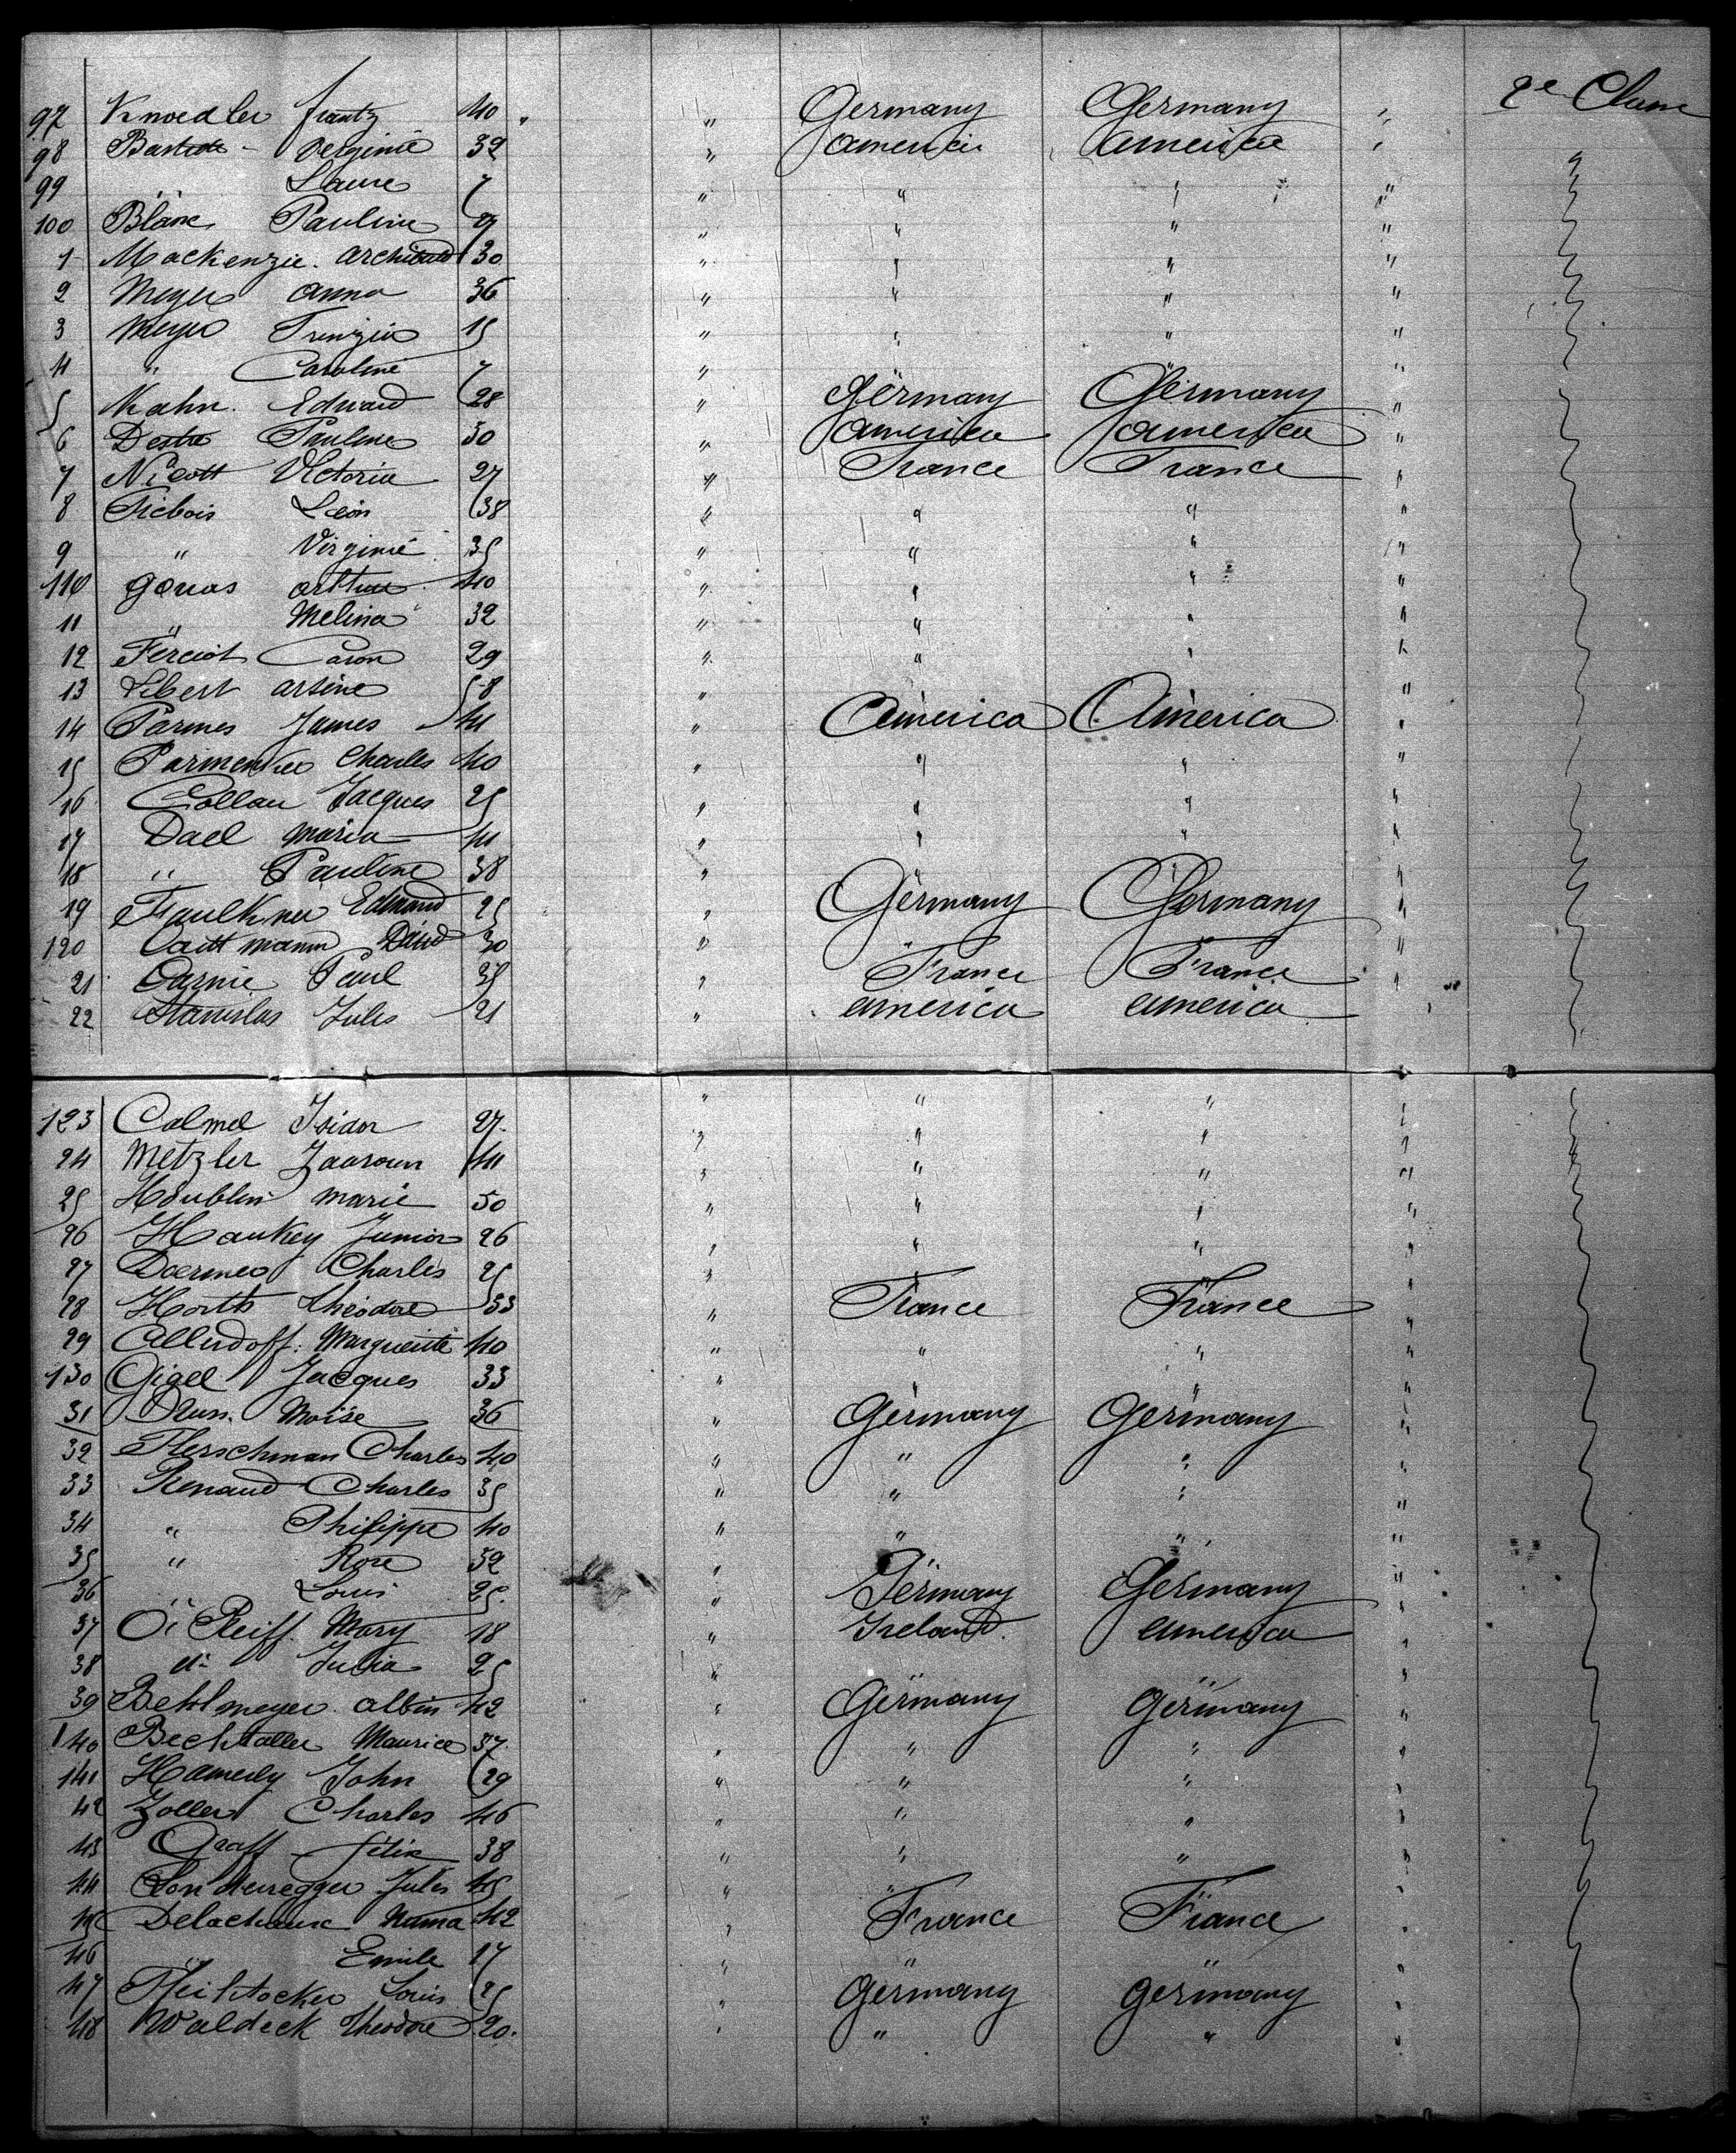 2e Classe
97 Knoedler frantz 40 " " Germany Germany "
98 Bastide - Verginie 32 " America America "
99 Laure 7 " " " "
100 Blanc Pauline 9 " " " "
1 Mackenzie. Archibald 30 " " " "
2 Meyer Anna 36 " " " "
3 Meyer 15 " " " "
4 " Caroline 7 " "
5 Kahn. Edward 28 " Germany Germany "
6 Pauline 30 " America America "
7 Nicott Victoria 27 " France France "
8 Léon 38 " " " "
9 " Virginie 35 " " " "
110 Gouas 40 " " " "
11 " Melina 32 " " " "
12 Caron 29 " " " "
13 Libert Arsène 58 " "
14 Parmes James 41 " America America "
15 Parmentier Charles 40 " " " "
16 Jacques 25 " " " "
17 Dael Maria 41 " " " "
18 " Pauline 38 " "
19 Faulkner Edmond 25 " Germany Germany "
120 David 30 " " " "
21 Garnie Paul 35 " France France "
22 Stanislas Jules 21 " America America "
123 Calmel Isidor 27. " " " "
24 Metzler 41 " " " "
25 Houblin Marie 50 " " " "
26 Haukey Junior 26 " " " "
27 Charles 25 " " " "
28 Horth théodore 33 " France France "
29 Marguerite 40 " " " "
130 Gigel Jacques 33 " " " "
31 Moïse 36 " Germany Germany "
32 Herschman Charles 40 " " " "
33 Renaud Charles 35 " " " "
34 " Philippe 40 " " " "
35 " Rose 52 "
36 " Louis 25. " Germany Germany "
37 Mary 18 " Ireland. America "
38 do Julia 25 "
39 Behlmeyer. Albin 42 " Germany Germany "
140 Maurice 37. " " " "
141 Hamerly John 29 " " " "
42 Zoller Charles 46 " " " "
43 Graff félix 38 " " " "
44 Sonderegger Jules 45 " "
45 Delachaux Numa 42 " France France "
46 " Emile 17 " " " "
47 Louis 25 " Germany Germany "
48 Waldeck theodore 20. " " " "